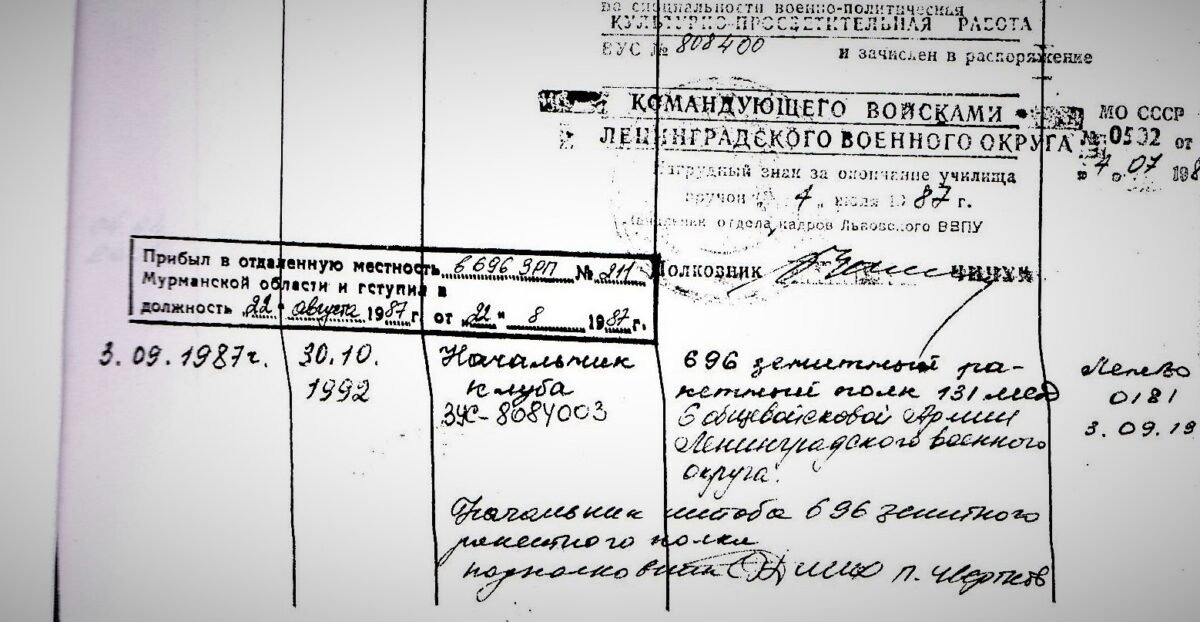 по специальности военно-политическая
КУЛЬТУРНО-ПРОСВЕТИТЕЛЬНАЯ РАБОТА
ВУС № 808400
и зачислен в распоряжение
КОМАНДУЮЩЕГО ВОЙСКАМИ
ЛЕНИНГРАДСКОГО ВОЕННОГО ОКРУГА
МО СССР
№ 0502 от
07 198
Нагрудный знак за окончание училища
вручен „4„ июля 1987 г.
Начальник отдела кадров Львовского ВВПУ
Полковник
ЧИЧУК
Прибыл в отдаленную местность в 696 ЗРП № 211
Мурманской области и вступил в
должность 22 " августа 1987 г. от „22 " 8 1987 г.
3.09.1987г.
30.10.
1992
Начальник
клуба
696 зенитный ра-
кетный полк 131 мсд
6 общевойсковой Армии
Ленинградского военного
округа.
0181
3.09.19
Начальник штаба 696 зенитного
ракетного полка
подполковник п. Чертков